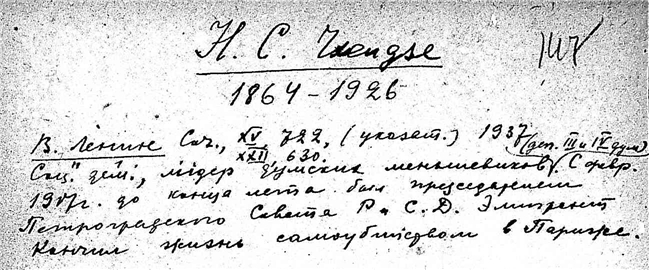 Н. С. Чхеидзе
1864 – 1926
В. Ленин Соч., XV 722, (указат.) 1937 (деп. III и IV дум)
XXI 630.
Соц. дем., лидер думских меньшевиков. С февр.
1917г. до конца лета был председателем
Петроградского Совета Р. и С. Д. Эмигрант
Кончил жизнь самоубийством в Париже.